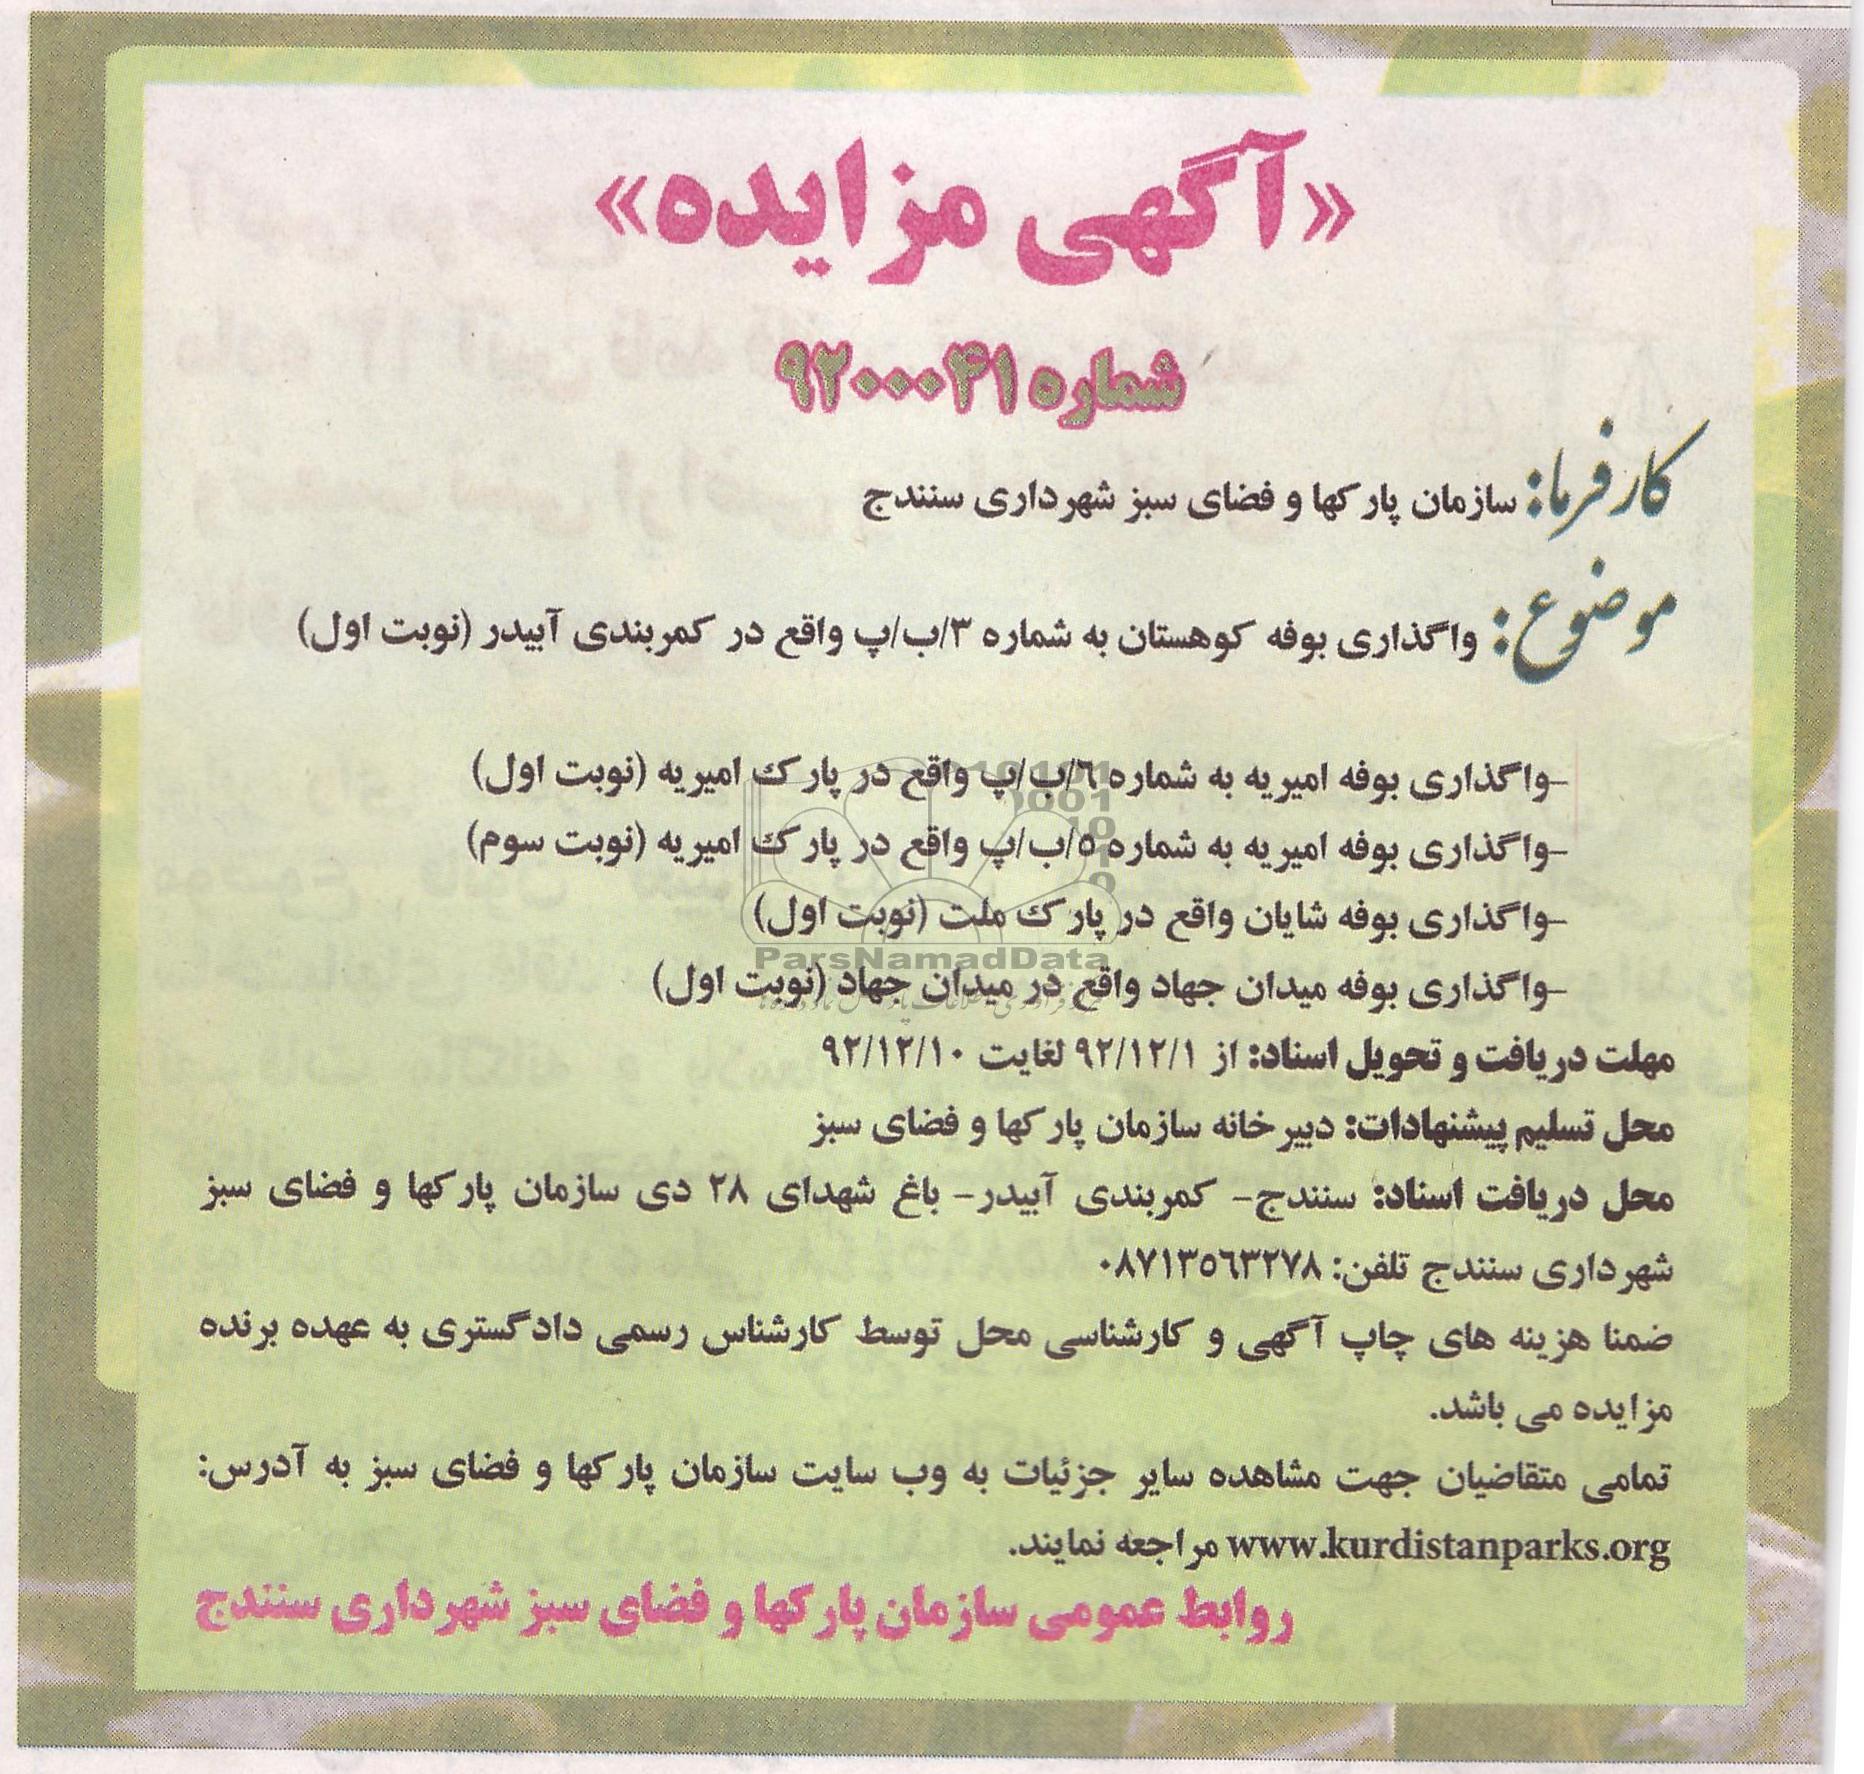 «آگهی مزایده»
شماره ۹۲۰۰۰۰۴۱
کارفرما: سازمان پارکها و فضای سبز شهرداری سنندج
موضوع: واگذاری بوفه کوهستان به شماره ۳/ب/پ واقع در کمربندی آبیدر (نوبت اول)
-واگذاری بوفه امیریه به شماره ۶/ب/پ واقع در پارک امیریه (نوبت اول)
-واگذاری بوفه امیریه به شماره ۵/ب/پ واقع در پارک امیریه (نوبت سوم)
-واگذاری بوفه شایان واقع در پارک ملت (نوبت اول)
ParsNamadData
-واگذاری بوفه میدان جهاد واقع در میدان جهاد (نوبت اول)
مهلت دریافت و تحویل اسناد: از ۹۲/۱۲/۱ لغایت ۹۲/۱۲/۱۰
محل تسلیم پیشنهادات: دبیرخانه سازمان پارکها و فضای سبز
محل دریافت اسناد: سنندج- کمربندی آبیدر- باغ شهدای ۲۸ دی سازمان پارکها و فضای سبز
شهرداری سنندج تلفن: ۰۸۷۱۳۵۶۳۲۷۸
ضمنا هزینه های چاپ آگهی و کارشناسی محل توسط کارشناس رسمی دادگستری به عهده برنده
مزایده می باشد.
تمامی متقاضیان جهت مشاهده سایر جزئیات به وب سایت سازمان پارکها و فضای سبز به آدرس:
www.kurdistanparks.org مراجعه نمایند.
روابط عمومی سازمان پارکها و فضای سبز شهرداری سنندج